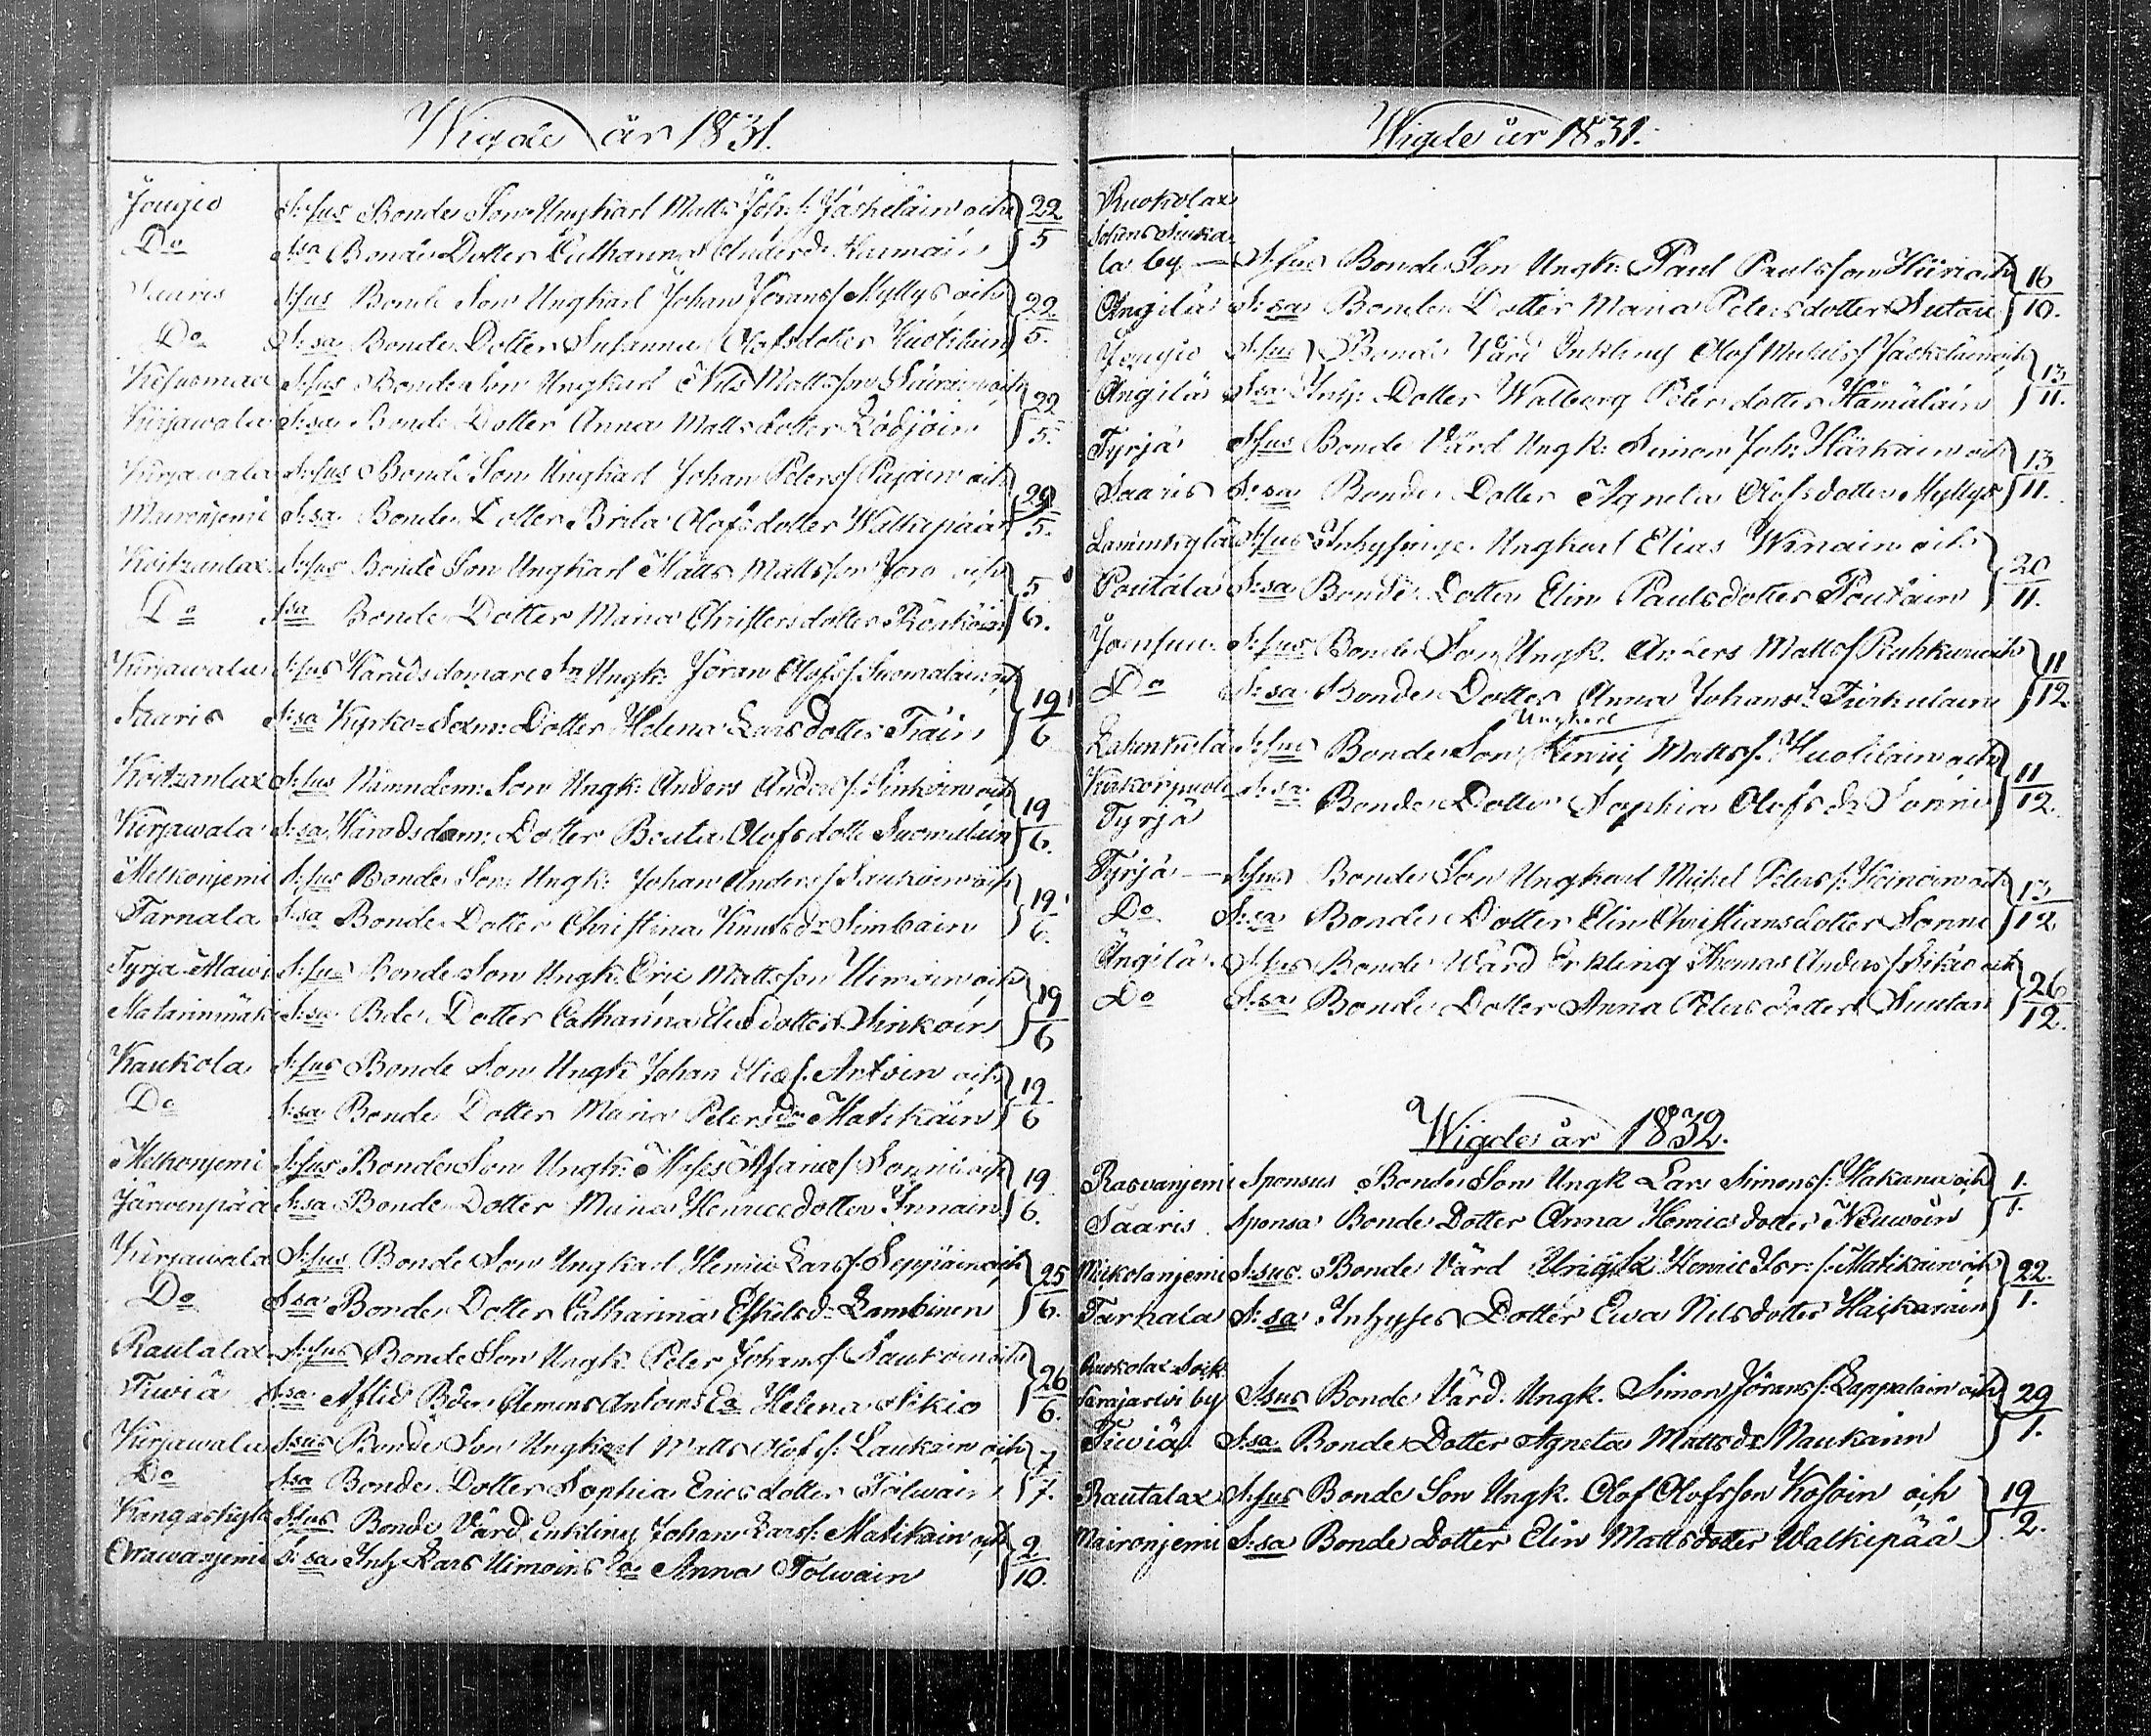 Wigde år 1831.
Jougio S:sus Bonde Son Ungkarl Matts Joh:s: Jäskeläin och 22/5
Do S:sa Bonde Dotter Catharina Andersd:r Haimain
Saaris S:sus Bonde Son Ungkarl Johan Göranss: Myllys och 22/5.
Do S:sa Bonde Dotter Susanna Olofsdotter Huotilain
Kesuomae S:sus Bonde Son Ungkarl Nils Mattsson och 22/5.
Kirjawala S:sa Bonde Dotter Anna Mattsdotter
Kirjawala S:sus Bonde Son Ungkarl Johan Peterss: Pajain och 29/5.
Maironjemi S:sa Bonde Dotter Brita Olofsdotter Walkipää
Koitzanlax S:sus Bonde Son Ungkarl Matts Mattsson Joro och 5/6.
Do S:sa Bonde Dotter Maria Christersdotter Rönköin
Kirjawala S:sus Häradsdomare Sn Ungk: Jöran Olofs: Suomalain och 19/6
Saaris S:sa Kyrko-Sexm: Dotter Helena Larsdotter Träin
Koitzanlax S:sus Nämndem: Son Ungk: Anders Anders: Sinkoin och 19/6.
Kirjawala S:sa Häradsdom: Dotter Beata Olofsdott: Suomalain
Melkonjemi S:sus Bonde Son Ungk: Johan Anders: Laukoin och 19/6.
Tarnala S:sa Bonde Dotter Christina Knutsd:r Simbain
Tyrjä Mawi S:sus Bonde Son Ungk: Eric Mattsson Uimoin och 19/6
Matarinmäki S:sa Bde Dotter Catharina Eliedotter Sinkoin
Kaukola S:sus Bonde Son Ungk: Johan Elias: Antoin och 19/6
Do S:sa Bonde Dotter Maria Petersdr Matikain
Melkonjemi S:sus Bonde Son Ungk: Moses Afanas: Sonni och 19/6.
Järwenpää S:sa Bonde Dotter Maria Henricsdotter Innain
Kirjawala S:sus Bonde Son Ungkarl Henric Larss: Seppäin och 25/6.
Do S:sa Bonde Dotter Catharina Eskilsd:r Lambinen
Rautalax S:sus Bonde Son Ungk: Peter Johans: Laukoin och 26/6.
Tiwiä S:sa Aflid Bden Clemens Antoins Ea Helena Sikio
Kirjawala S:sus Bonde Son Ungkarl Matts Olofs: Laukain och 7/7.
Do S:sa Bonde Dotter Sophia Ericsdotter Tolwain
Kangaskylä S:sus Bonde Värd Enkling Johan Larss: Matikain och 2/10.
Orawanjemi S:sa Inh: Lars Uimoins Ea Anna Tolwain
Wigde år 1831.
Ruokolax
Sokens
la by — S:sus Bonde Son Ungk: Paul Paulsson Hiiri och 16/10.
Ängilä S:sa Bonde Dotter Maria Petersdotter Sutari
Jougio S:sus Bonde Värd Enkling Olof Michels: Jäskeläin och 13/11.
Ängilä S:sa Inh: Dotter Walborg Petersdotter Hämäläin
Tyrjä S:sus Bonde Värd Ungk: Simon Joh: Härkäin och 13/11.
Saaris S:sa Bonde Dotter Agneta Olofsdotter Myllys
Lamenkylä S:sus Inhysinge Ungkarl Elias Winain och 20/11.
Poutala S:sa Bonde Dotter Elin Paulsdotter Poutain
Joensuu S:sus Bonde Son Ungk. Anders Mattss: Ruhkain och 11/12.
Do S:sa Bonde Dotter Anna Johansd: Turkulain
Ungkarl
Lahenkylä S:sus Bonde Son Henric Mattss: Huotilain och 11/12.
Kirkonpuoli S:sa Bonde Dotter Sophia Olofsdr Sonni
Tyrjä
Tyrjä — S:sus Bonde Son Ungkarl Michel Peters: Koinoin och 13/12
Do S:sa Bonde Dotter Elin Christiansdotter Sonni
Ängilä S:sus Bonde Värd Enkling Thomas Anderss: Sikio och 26/12.
Do S:sa Bonde Dotter Anna Petersdotter Suutari
Wigde år 1832.
Rasvanjemi Sponsus Bonde Son Ungk Lars Simonss: Hakana och 1/1.
Saaris Sponsa Bonde Dotter Anna Henricsdotter Neuwoin
Mikolanjemi S:sus Bonde Värd Ungk Henric Isr: s: Matikain och 22/1.
Tarnala S:sa Inhyses Dotter Ewa Nilsdotter Haikarain
Ruokolax Sock
Särajärwi by S:sus Bonde Värd Ungk. Simon Jöranss: Lappalain och 29/1.
Tiwiä S:sa Bonde Dotter Agneta Mattsdr Naukarin
Rautalax S:sus Bonde Son Ungk. Olof Olofsson Kosoin och 19/2.
Maironjemi S:sa Bonde Dotter Elin Mattsdotter Walkipää